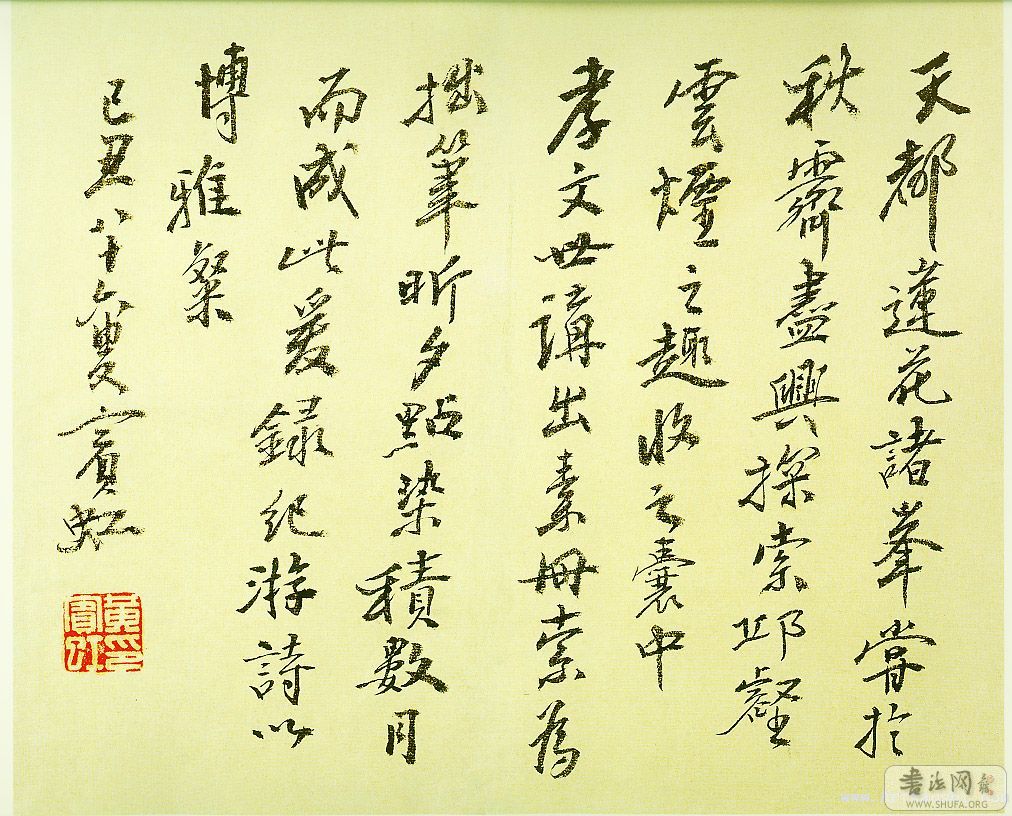 天都蓮花諸峯嘗於
秋霽盡興探索邱壑
雲煙之趣收之囊中
孝文世講出素冊索為
拙筆昕夕點染積數月
而成此爰錄紀游詩以
博雅粲
己丑八十六叟賓虹
黃賓虹印
書法网
WWW.SHUFA.ORG